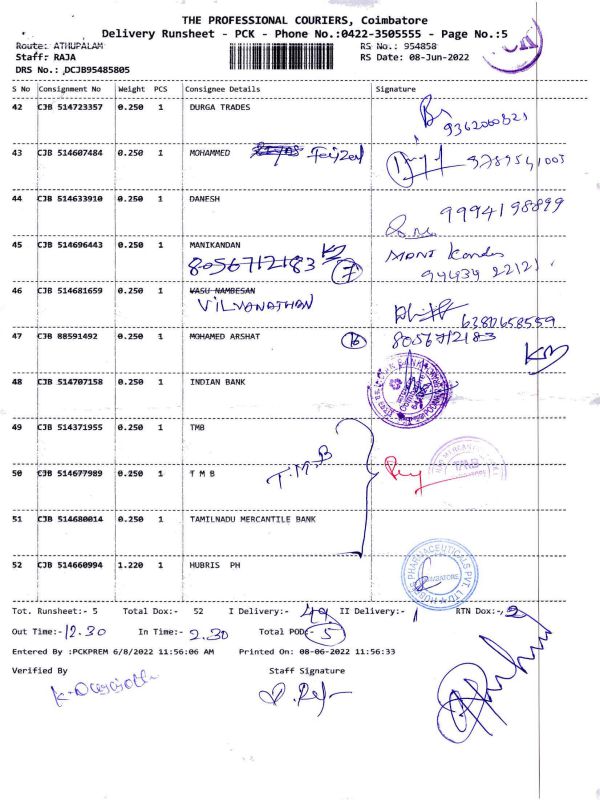 THE PROFESSIONAL COURIERS, Coimbatore
Delivery Runsheet - PCK - Phone No.:0422-3505555 - Page No.:5
Route: ATHUPALAM RS No.: 954858
Staff: RAJA RS Date: 08-Jun-2022
DRS No.: DCJB95485805
S No Consignment No Weight PCS Consignee Details Signature
42 CJB 514723357 0.250 1 DURGA TRADES
9362000321
43 CJB 514607484 0.250 1 MOHAMMED Feizal 9789541003
44 CJB 514633910 0.250 1 DANESH
9994198899
45 CJB 514696443 0.250 1 MANIKANDAN
8056712183 7
94434 22121
46 CJB 514681659 0.250 1 VASU NAMBESAN
VILVANATHAN
6380658559
47 CJB 88591492 0.250 1 MOHAMED ARSHAT 16 8056712183
48 CJB 514707158 0.250 1 INDIAN BANK
49 CJB 514371955 0.250 1 TMB
50 CJB 514677989 0.250 1 T M B T.M.B
TMB
51 CJB 514680014 0.250 1 TAMILNADU MERCANTILE BANK
52 CJB 514660994 1.220 1 HUBRIS PH
HUBRIS PHARMACEUTICALS PVT. LTD COIMBATORE
Tot. Runsheet:- 5 Total Dox:- 52 I Delivery:- 49 II Delivery:- 1 RTN Dox:- 2
Out Time:- 12.30 In Time:- 2.30 Total POD:- 5
Entered By :PCKPREM 6/8/2022 11:56:06 AM Printed On: 08-06-2022 11:56:33
Verified By Staff Signature